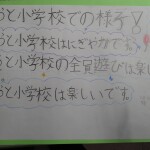 うと小学校での様子!
うと小学校はにぎやかです。
うと小学校の全員遊びは楽し
うと小学校は楽しいです。